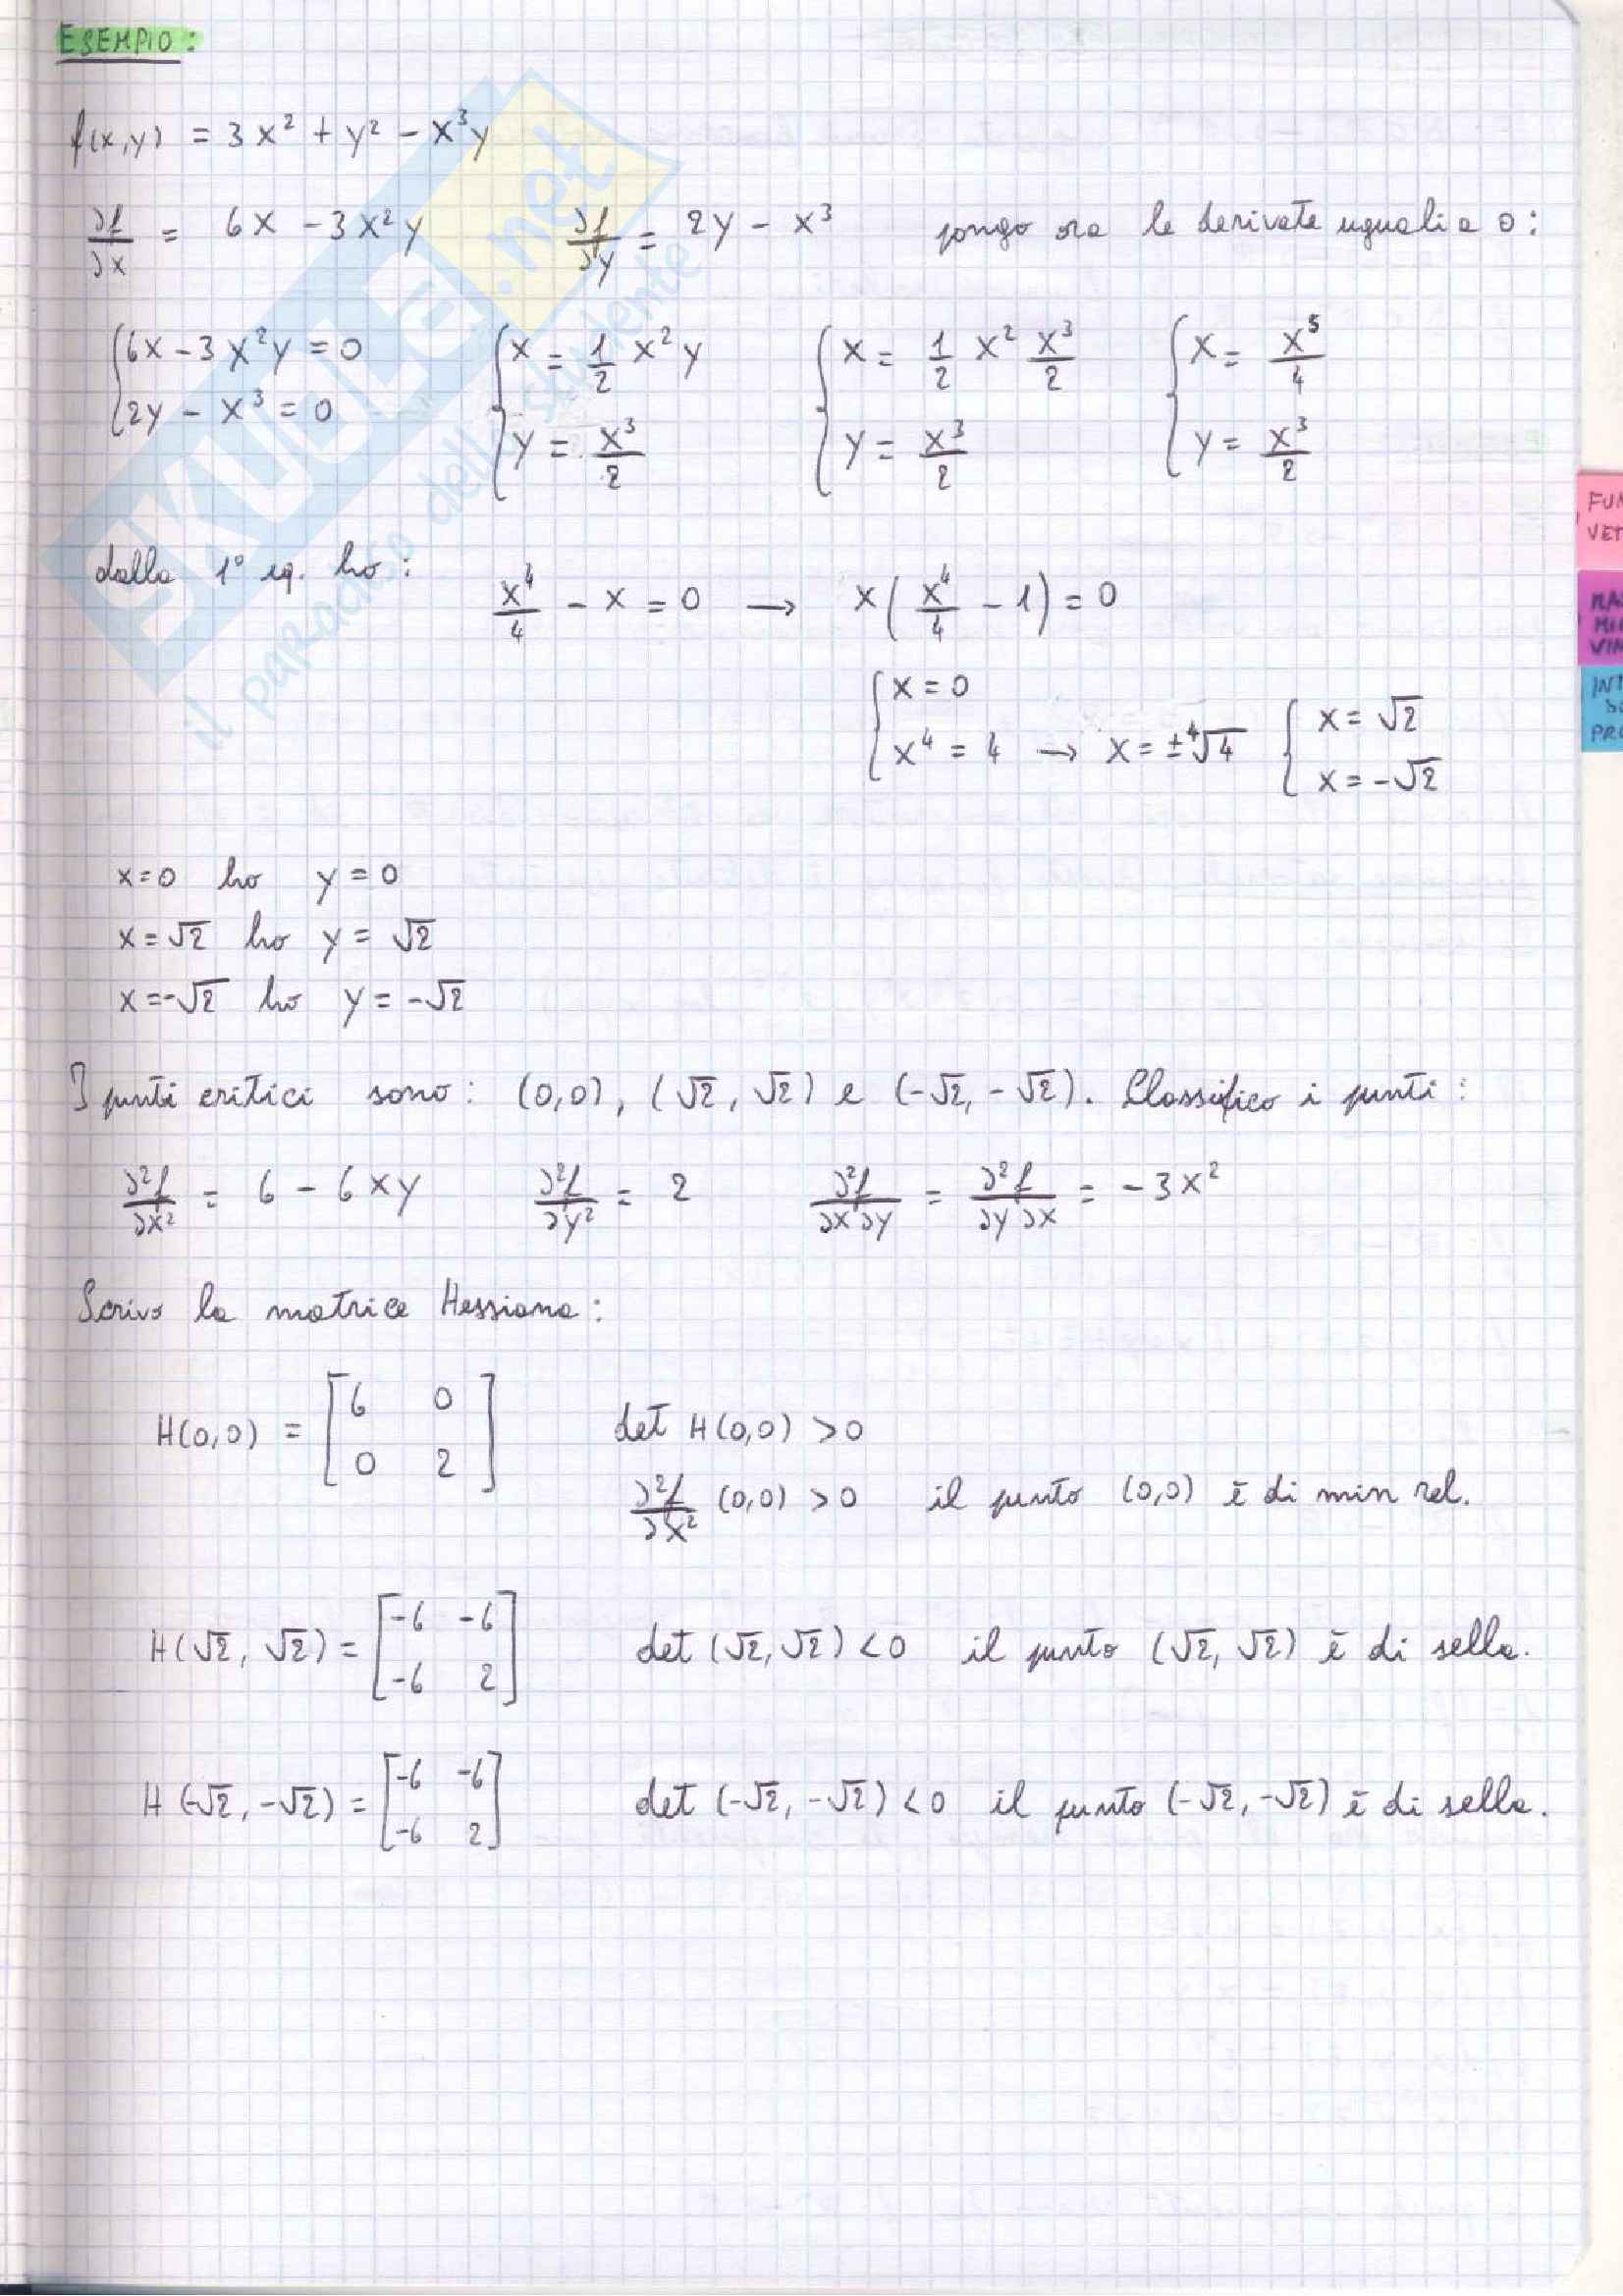 ESEMPIO:
f(x,y) = 3x² + y² - x³y
∂f/∂x = 6x - 3x²y ∂f/∂y = 2y - x³ pongo ora le derivate uguali a 0:
{6x - 3x²y = 0 {x = 1/2 x² y {x = 1/2 x² x³/2 {x = x⁵/4
{2y - x³ = 0 {y = x³/2 {y = x³/2 {y = x³/2
dalla 1° eq. ho: x⁴/4 - x = 0 → x(x⁴/4 - 1) = 0
{x = 0
{x⁴ = 4 → x = ±⁴√4 {x = √2
{x = -√2
x = 0 ho y = 0
x = √2 ho y = √2
x = -√2 ho y = -√2
I punti critici sono: (0,0), (√2, √2) e (-√2, -√2). Classifico i punti:
∂²f/∂x² = 6 - 6xy ∂²f/∂y² = 2 ∂²f/∂x∂y = ∂²f/∂y∂x = -3x²
Scrivo la matrice Hessiana:
H(0,0) = [6 0
0 2] det H(0,0) > 0
∂²f/∂x² (0,0) > 0 il punto (0,0) è di min rel.
H(√2, √2) = [-6 -6
-6 2] det (√2, √2) < 0 il punto (√2, √2) è di sella.
H(-√2, -√2) = [-6 -6
-6 2] det (-√2, -√2) < 0 il punto (-√2, -√2) è di sella.
FUN
VET
MAX
MIN
VIN
INT
PRO
SKUOLA.net
il paradiso dello studente